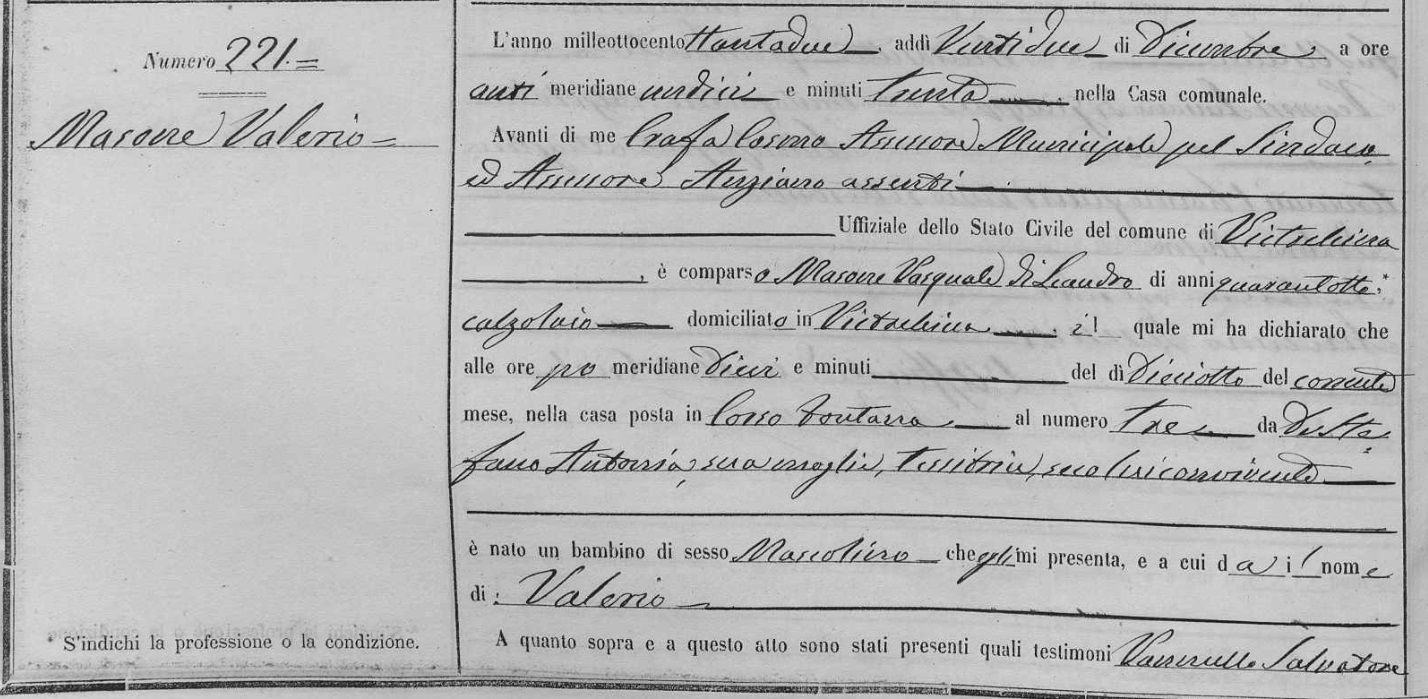 Numero 221.=
Masone Valerio=
L'anno milleottocento ttantadue, addì Ventidue di Dicembre, a ore
anti meridiane undici e minuti trenta, nella Casa comunale.
Avanti di me Assessore Municipale pel Sindaco,
ed Assessore Anziano assenti
Uffiziale dello Stato Civile del comune di
, è comparso Masone Pasquale di Leandro di anni quarantotto,*
calzolaio domiciliato in , il quale mi ha dichiarato che
alle ore po meridiane dieci e minuti del dì Diciotto del corrente
mese, nella casa posta in Corso Fontana al numero tre, da De Ste
fano Antonia, sua moglie, tessitrice, seco lui convivente
è nato un bambino di sesso Mascolino che egli mi presenta, e a cui dà il nome
di: Valerio
A quanto sopra e a questo atto sono stati presenti quali testimoni Salvatore
* S'indichi la professione o la condizione.